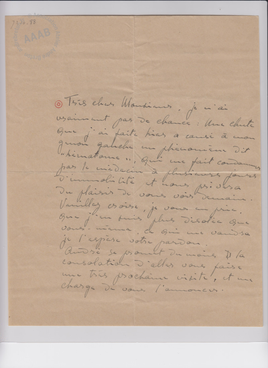 AAAB
Très cher Monsieur, je n'ai
vraiment pas de chance. Une chute
que j'ai faite hier a causé à mon
genou gauche un phénomène dit
« hématome », qui me fait condamner
par le médecin à plusieurs jours
d'immobilité et nous privera
du plaisir de vous voir demain.
Veuillez croire, je vous en prie,
que j'en suis plus désolée que
vous-même, ce qui me vaudra
je l'espère votre pardon.
se promet du moins la
consolation d'aller vous faire
une très prochaine visite, et me
charge de vous l'annoncer.